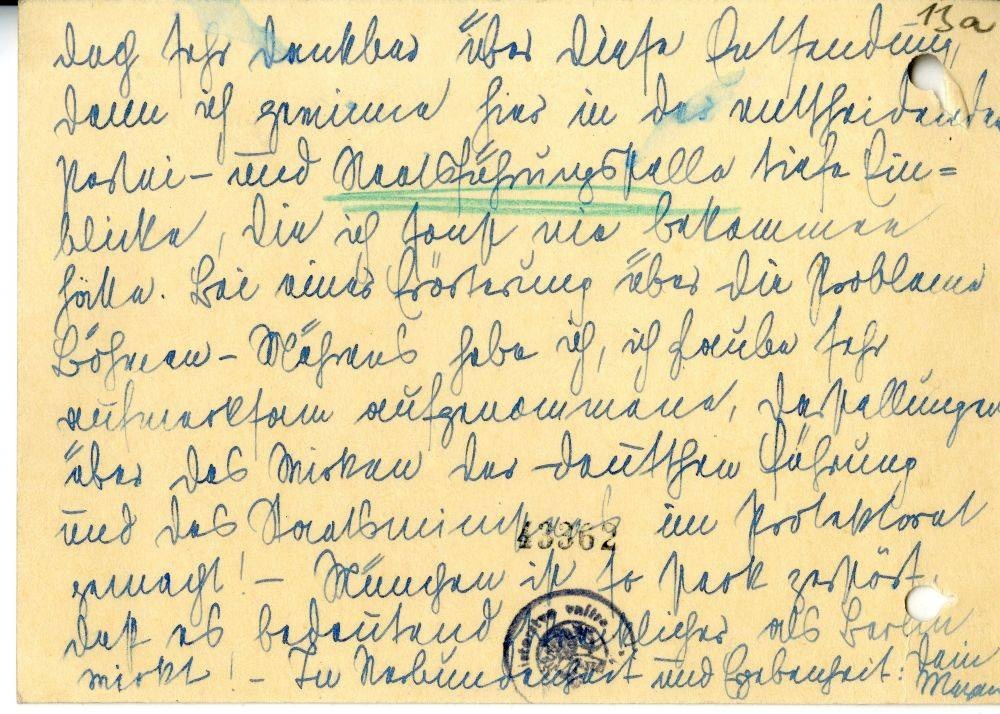 13a
doch sehr dankbar über diese Entsendung,
denn ich gewinne hier in der entscheidenden
Partei- und Staatsführungsstelle tiefe Ein=
blicke, die ich sonst nie bekommen
hätte. Bei einer Erörterung über die Probleme
Böhmen-Mährens habe ich, ich glaube sehr
aufmerksam aufgenommene, Darstellungen
über das Wirken der deutschen Führung
und des Staatsministers im Protektorat
43362
gemacht! - München ist so stark zerstört,
daß es bedeutend schrecklicher als Berlin
wirkt! - In Verbundenheit und Ergebenheit: Dein